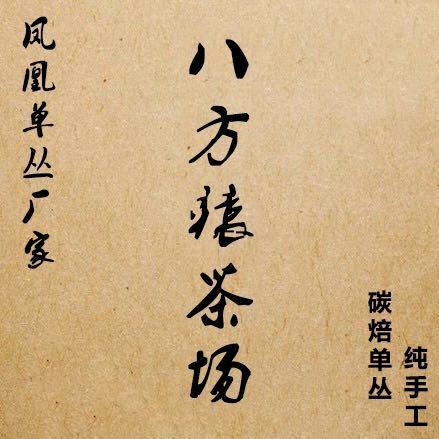 凤凰单丛厂家
八方茶场
碳焙单丛
纯手工